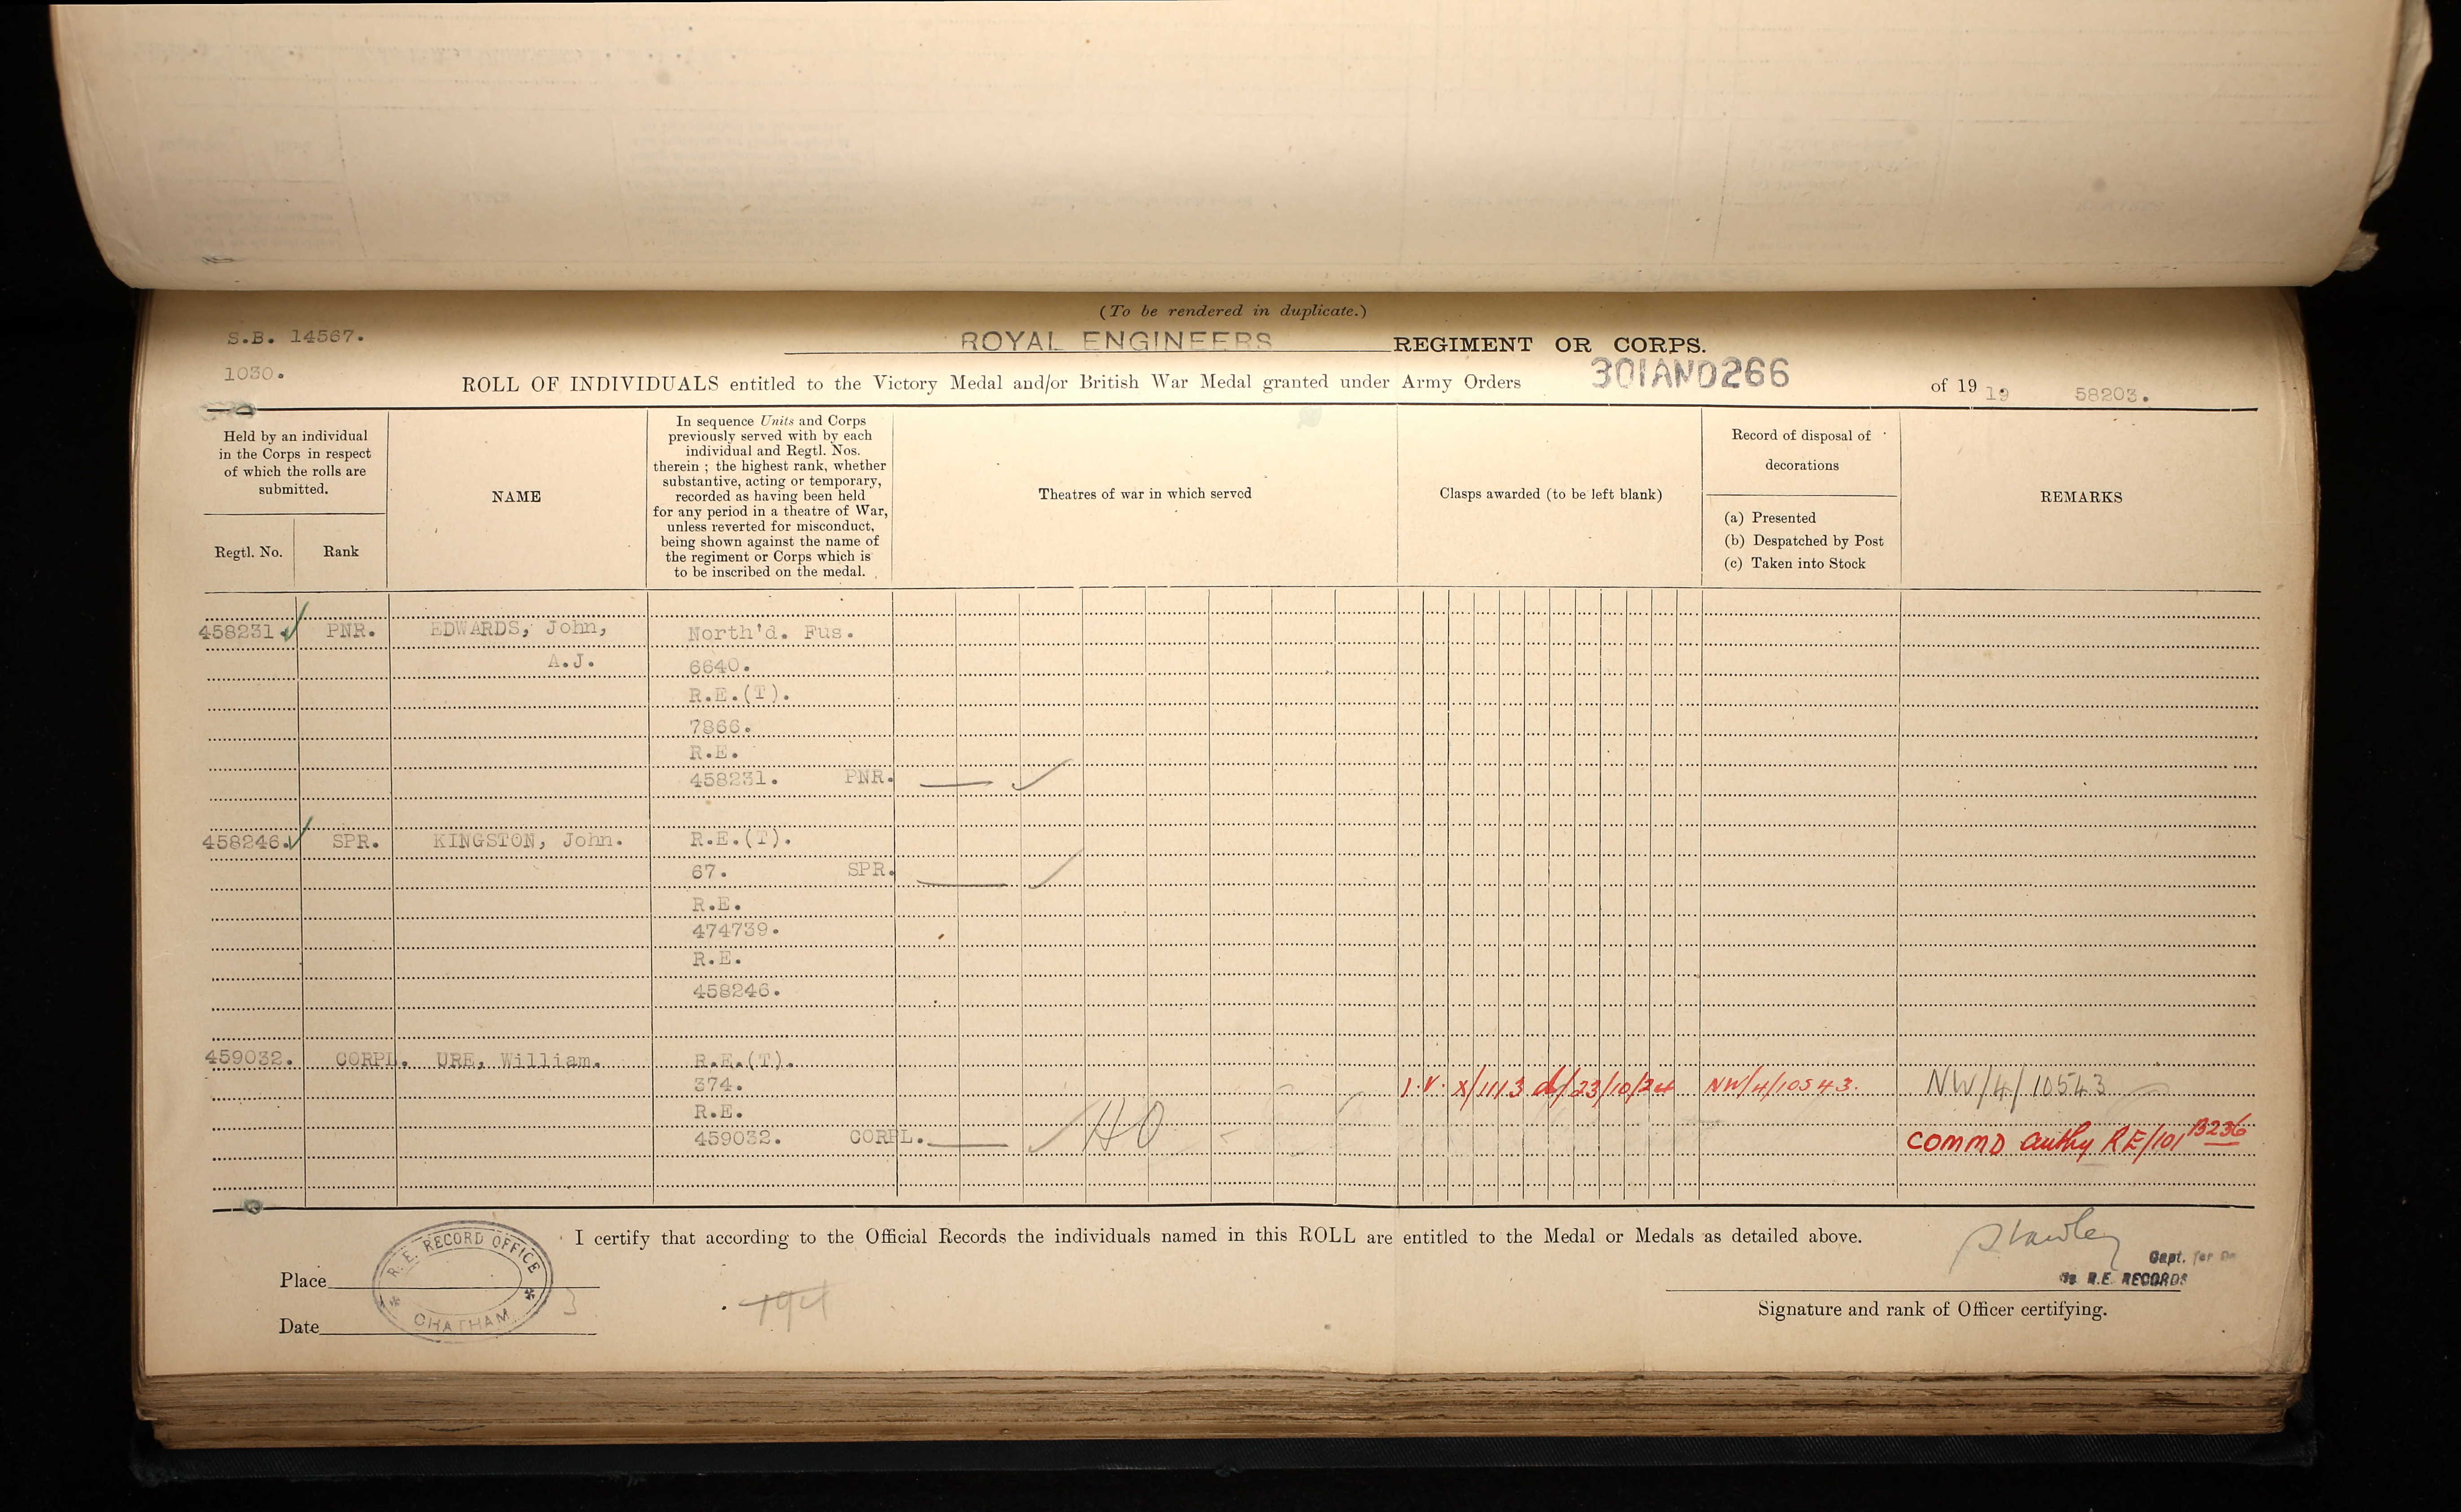 (To be rendered in duplicate.)
S.B. 14567.
ROYAL ENGINEERS REGIMENT OR CORPS.
1030.
ROLL OF INDIVIDUALS entitled to the Victory Medal and/or British War Medal granted under Army Orders 301AND266 of 19 19 58203.
Held by an individual
in the Corps in respect
of which the rolls are
submitted.
Regtl. No.
Rank
NAME
In sequence Units and Corps
previously served with by each
individual and Regtl. Nos.
therein ; the highest rank, whether
substantive, acting or temporary,
recorded as having been held
for any period in a theatre of War,
unless reverted for misconduct,
being shown against the name of
the regiment or Corps which is
to be inscribed on the medal.
Theatres of war in which served
Clasps awarded (to be left blank)
Record of disposal of
decorations
(a) Presented
(b) Despatched by Post
(c) Taken into Stock
REMARKS
458231. PNR. EDWARDS, John, North'd. Fus.
A.J. 6640.
R.E.(T).
7866.
R.E.
458231. PNR.
458246. SPR. KINGSTON, John. R.E.(T).
67. SPR.
R.E.
474739.
R.E.
458246.
459032. CORPL. URE, William. R.E.(T).
374. I.V. X/1113 d/23/10/24 NW/4/10543. NW/4/10543
R.E.
459032. CORPL. HO COMMD authy RE/101 B236
I certify that according to the Official Records the individuals named in this ROLL are entitled to the Medal or Medals as detailed above.
R.E. RECORD OFFICE
CHATHAM
Place
Date
3
Capt. for
R.E. RECORDS
Signature and rank of Officer certifying.